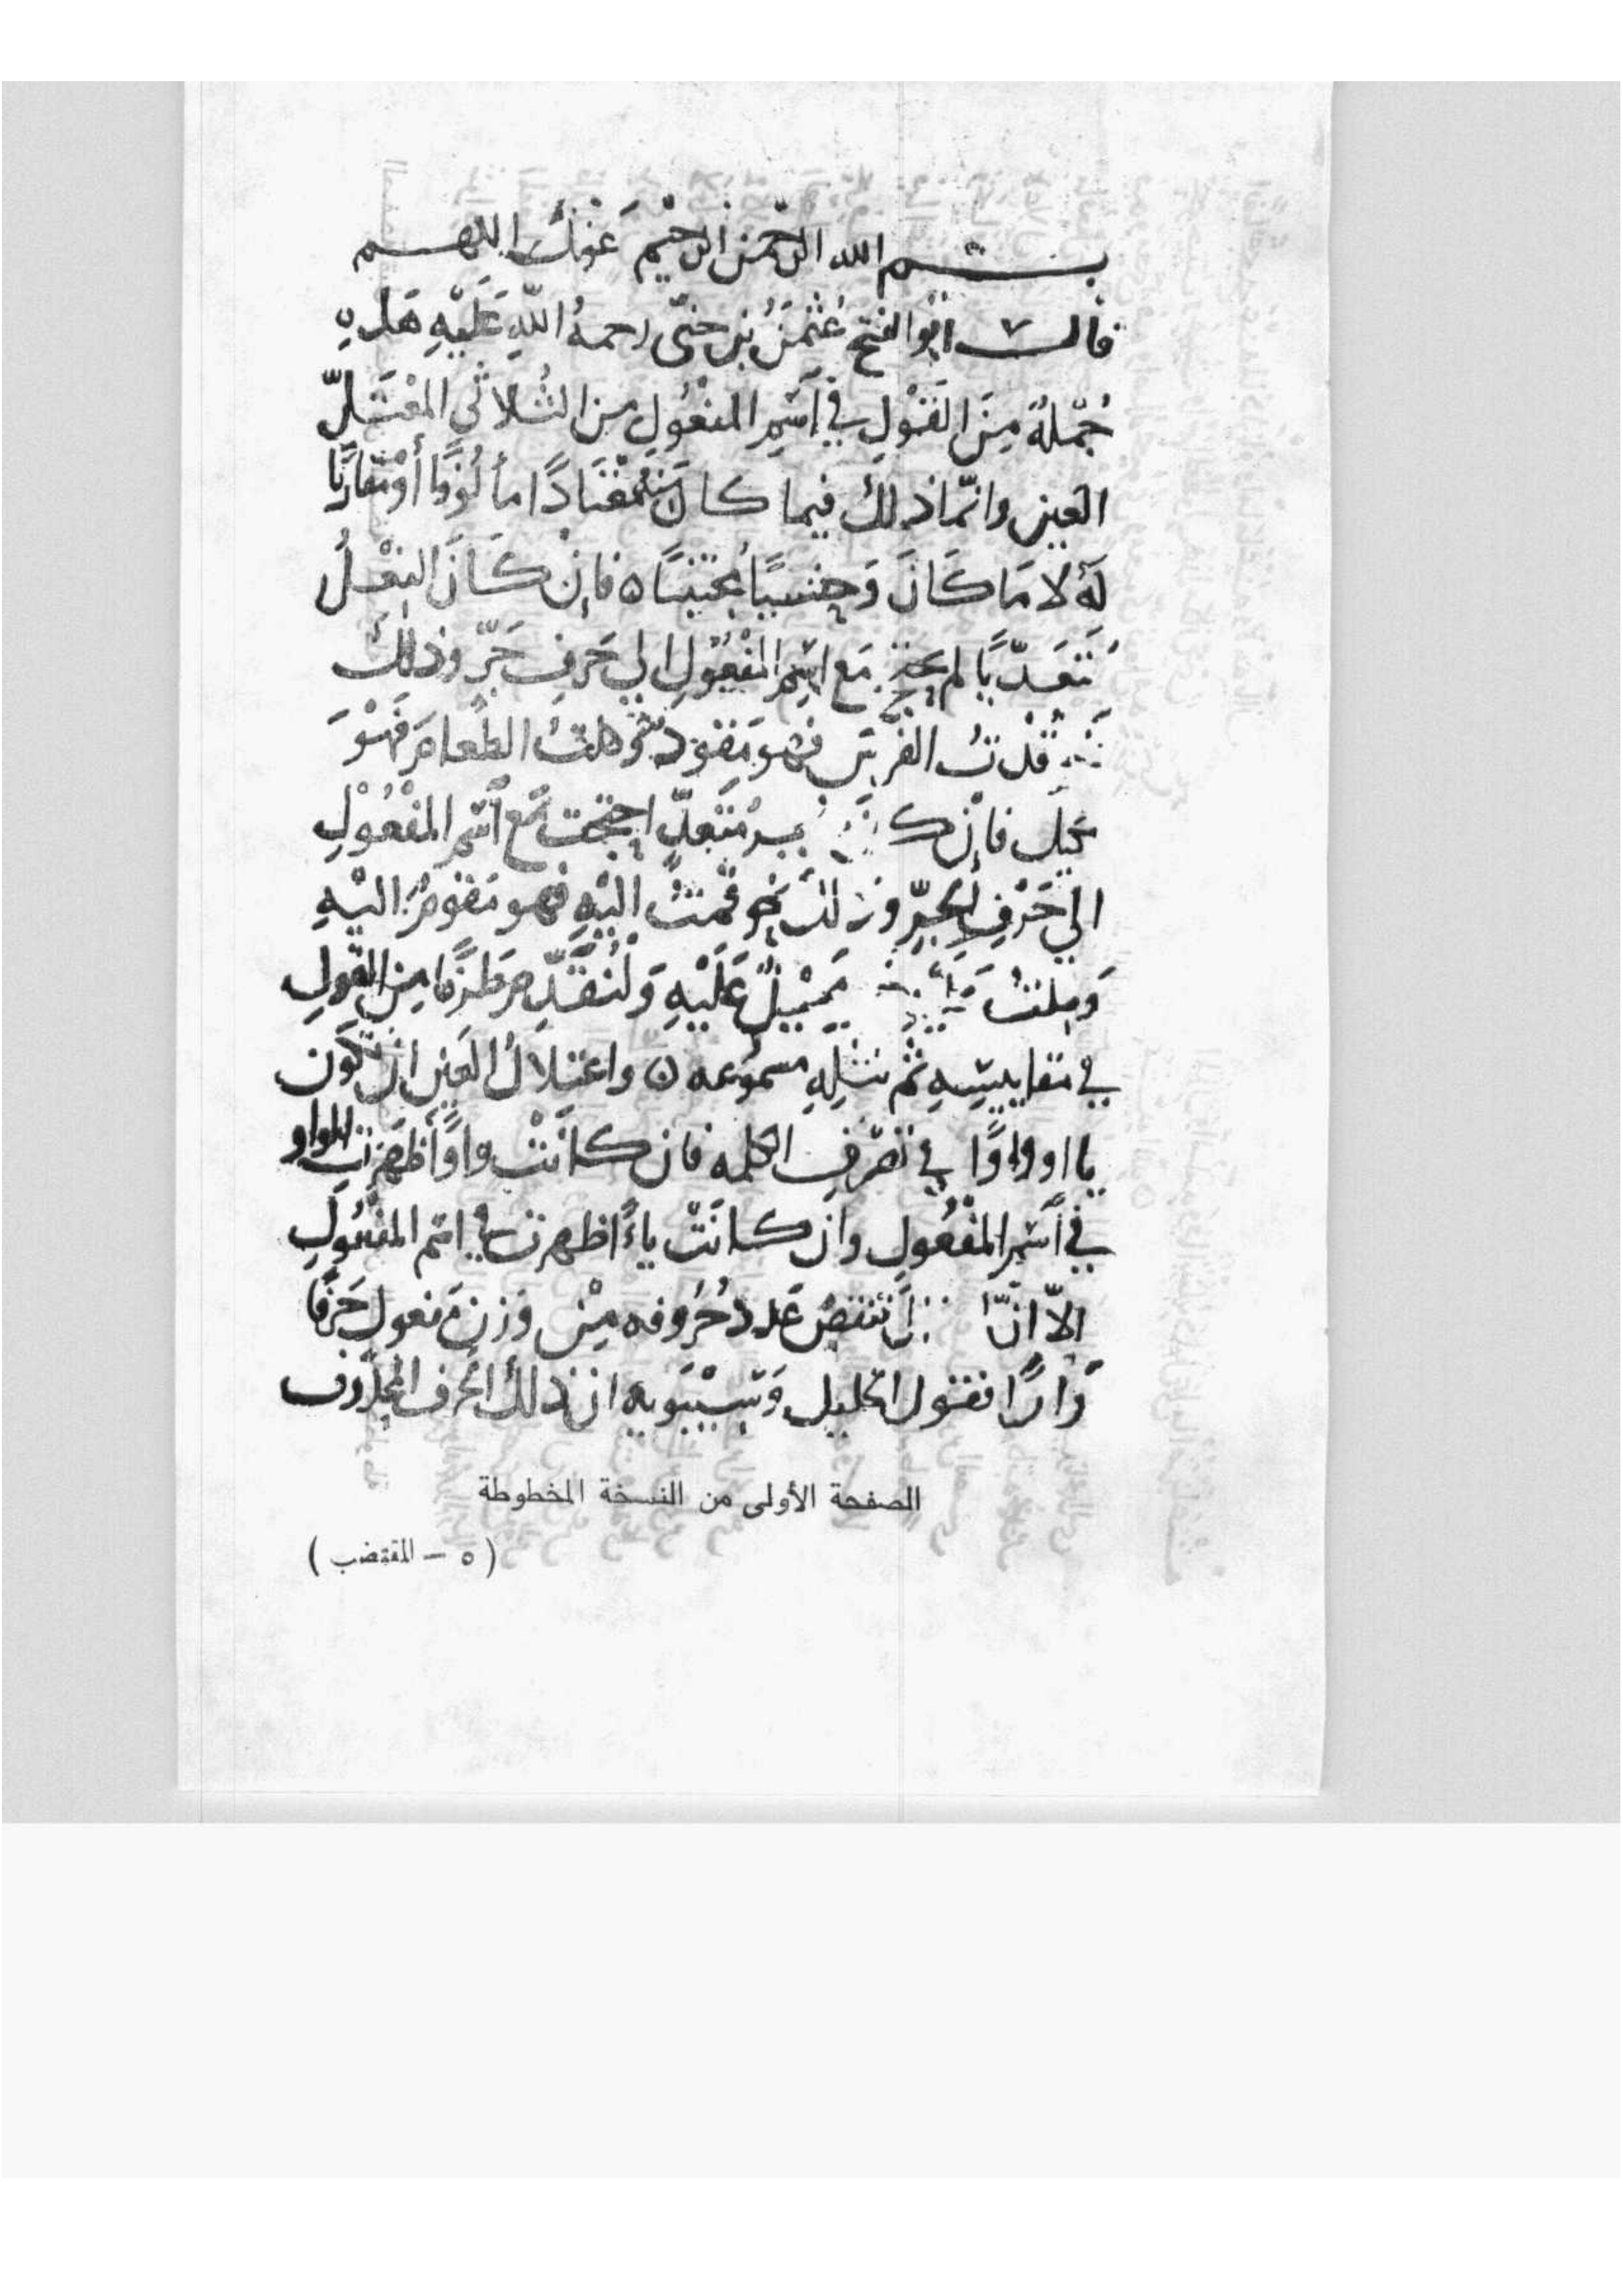 بسم الله الرحمن الرحيم عونك اللهم
قال ابو الفتح عُثْمٰنُ بن جنّى رحمةُ اللهِ عَلَيْهِ هَذِهِ
جُمْلةٌ مِنَ القَوْلِ في اسْمِ المفعُولِ من الثُّلاثي المُعْتَلِّ
العين وانّما ذلك فيما كان مُنْقَادًا مألُوفًا أوْ مُتقَارَبًا
لَهُ لا مَا كَانَ وَحْشِيًا مُجْتَنَبًا ه فإنْ كَانَ الفِعْلُ
مُتَعَدّيًا لم يحتج مَع اسْمِ المفْعُولِ الي حَرفِ جَرّ وذلك
قُدْتُ الفَرَسَ فهو مَقُود وكلتُ الطَّعامَ فَهْوَ
مَكِيل فإن ك مُتَعَدٍّ احتجْت مَع اسْمِ المَفْعُوْلِ
الي حَرْفِ الجرِّ وذلك نحو قُمْتُ إليْهِ فهو مَقُومٌ اليْهِ
وَمِلتُ مَمِيْلٌ عَلَيْهِ وَلْنُقَدِّم طَرَفًا مِنَ القَولِ
في مقاييسِهِ ثُم نتْلِهِ مسموعه ه واعتِلالُ العَيْنِ ان تكون
يا او واوًا في تصَرّفِ الكلمه فان كانَتْ واوًا أظهَرتَ الواو
في اسْمِ المَفْعُولِ وان كانَتْ ياءً اظهرت في اسم المفعُولِ
الاّ انّ تنقصُ عَدد حُرُوفه مِنْ وَزن مَفعولٍ حَرْفًا
وَاحِدًا فقول الخليل وَسِيْبَوَيه ان ذلك الحرف المحذوف
الصفحة الأولى من النسخة المخطوطة
( ٥ – المقتضب )